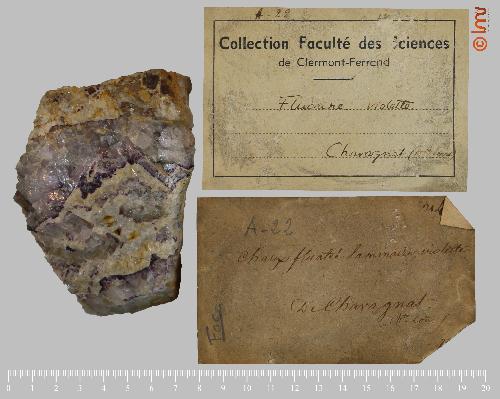 A-22
Collection Faculté des Sciences
de Clermont-Ferrand
Fluorine violette
Charagnat
A-22
Chaux fluatée laminaire violette
De Charagnat
Fac
0 1 2 3 4 5 6 7 8 9 10 11 12 13 14 15 16 17 18 19 20